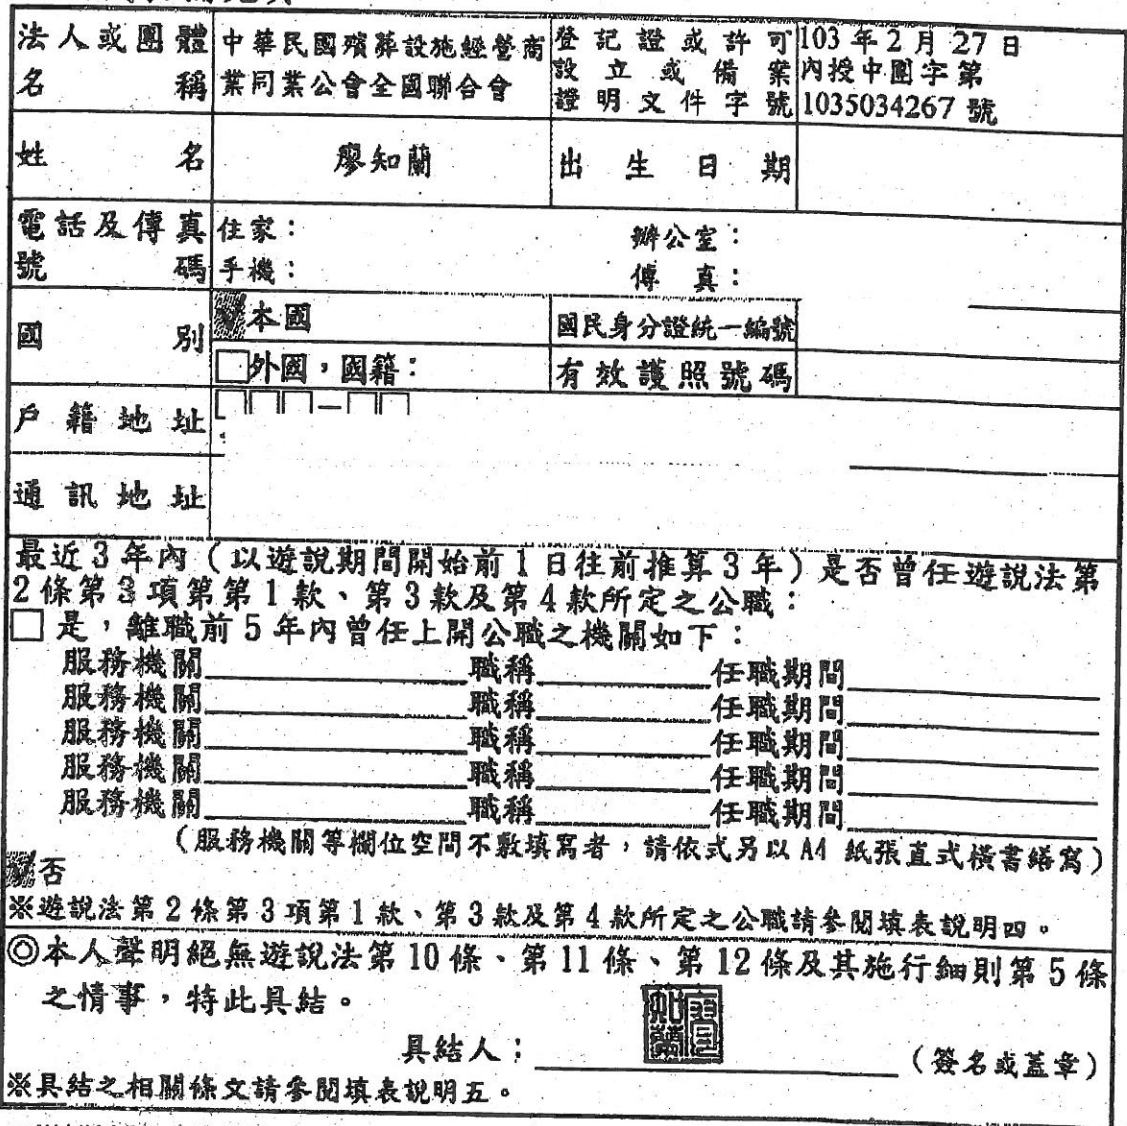 法人或團體名稱 中華民國殯葬設施經營商業同業公會全國聯合會 登記證或許可設立或備案證明文件字號 103年2月27日內授中團字第1035034267號
姓名 廖知蘭 出生日期
電話及傳真號碼 住家： 辦公室：
手機： 傳真：
國別 本國 國民身分證統一編號
□外國，國籍： 有效護照號碼
戶籍地址 □□□－□□
通訊地址
最近3年內（以遊說期間開始前1日往前推算3年）是否曾任遊說法第
2條第3項第第1款、第3款及第4款所定之公職：
□是，離職前5年內曾任上開公職之機關如下：
服務機關 職稱 任職期間
服務機關 職稱 任職期間
服務機關 職稱 任職期間
服務機關 職稱 任職期間
服務機關 職稱 任職期間
（服務機關等欄位空間不敷填寫者，請依式另以A4 紙張直式橫書繕寫）
否
※遊說法第2條第3項第1款、第3款及第4款所定之公職請參閱填表說明四。
◎本人聲明絕無遊說法第10條、第11條、第12條及其施行細則第5條
之情事，特此具結。
具結人： （簽名或蓋章）
※具結之相關條文請參閱填表說明五。